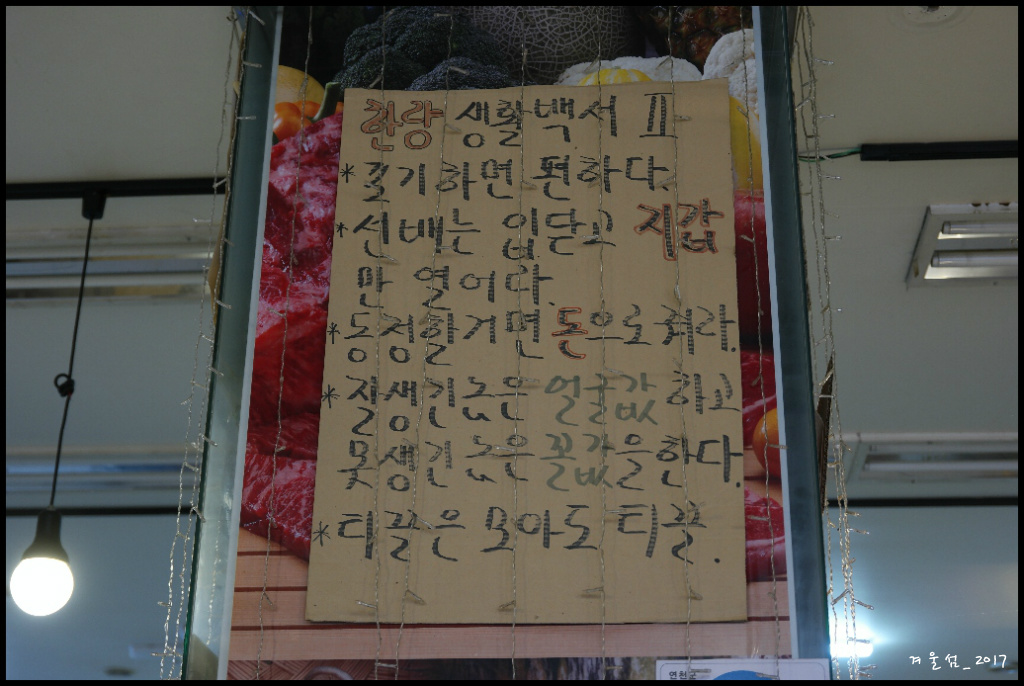 한량 생활백서 Ⅱ
*포기하면 편하다.
*선배는 입닫고 지갑
만 열어라.
*동정할거면 돈으로줘라.
*잘생긴놈은 얼굴값 하고
못생긴 놈은 꼴값을한다.
*티끌은 모아도 티끌.
연천군
겨울섬_2017